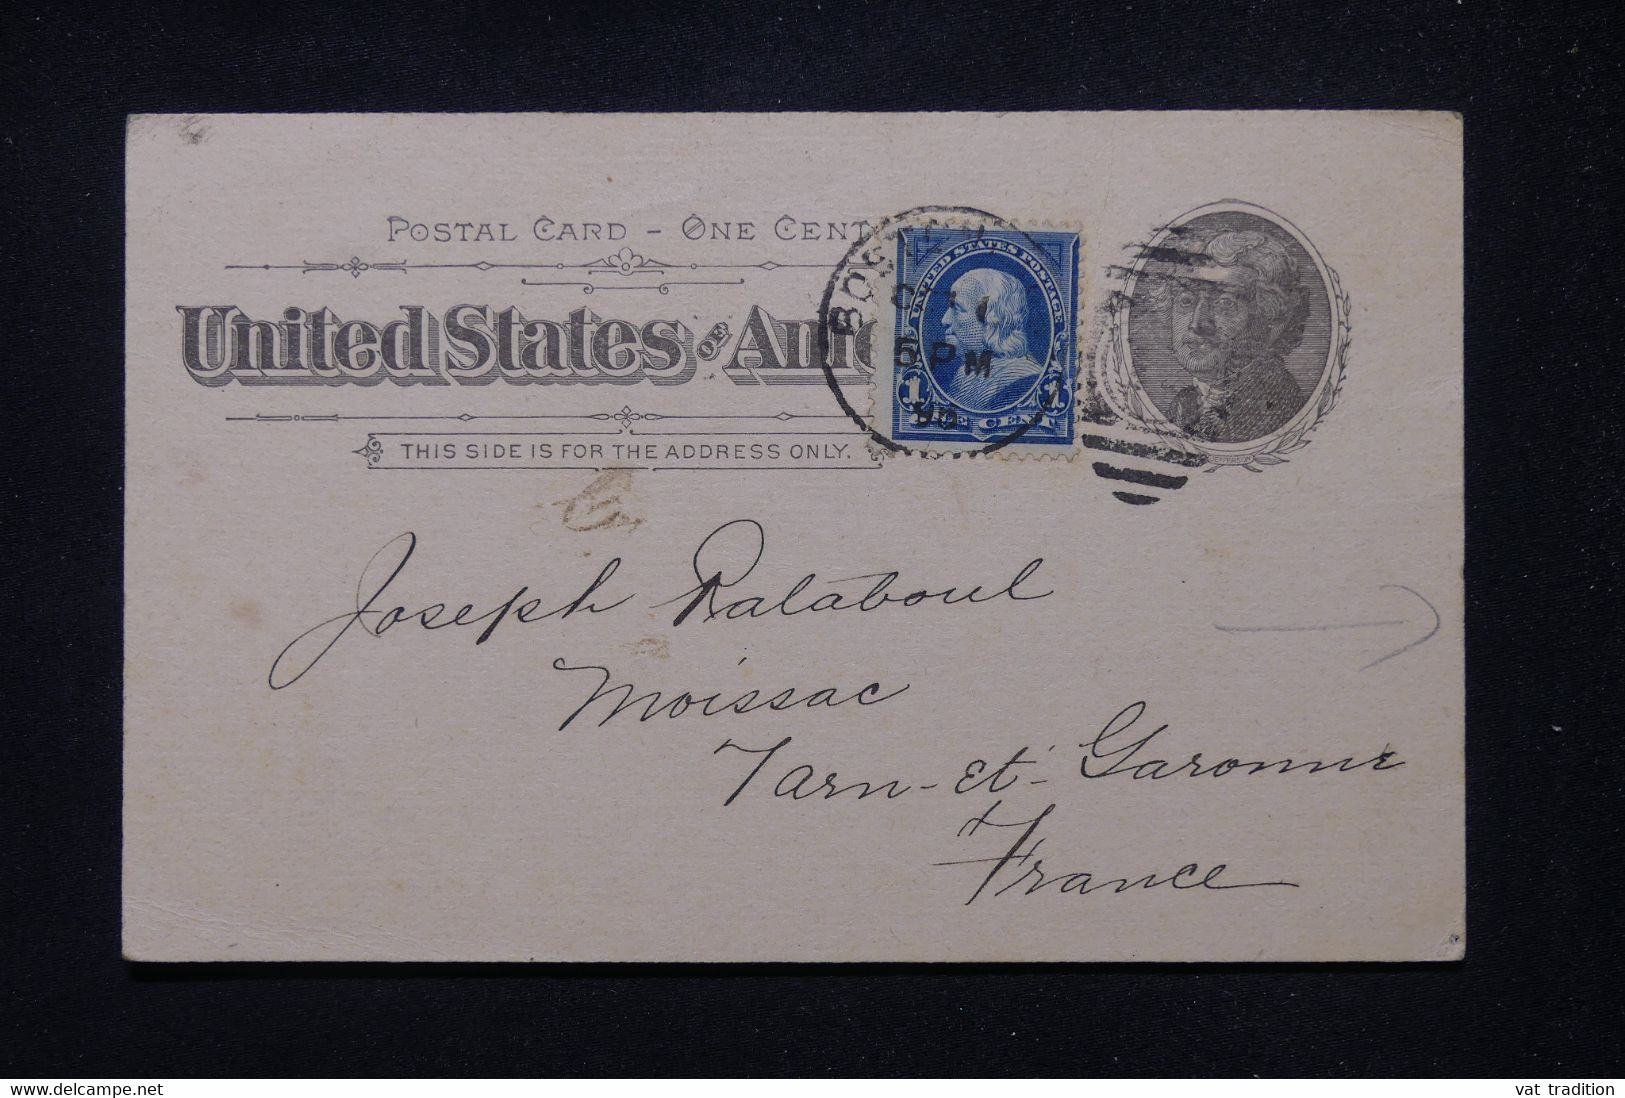 POSTAL CARD - ONE CENT
United States OF Ame
THIS SIDE IS FOR THE ADDRESS ONLY.
UNITED STATES POSTAGE
1 1
CENT
BOSTON
5 PM
JEFFERSON
Joseph Ralaboul
Moissac
Tarn-et-Garonne
France
vat tradition
www.delcampe.net